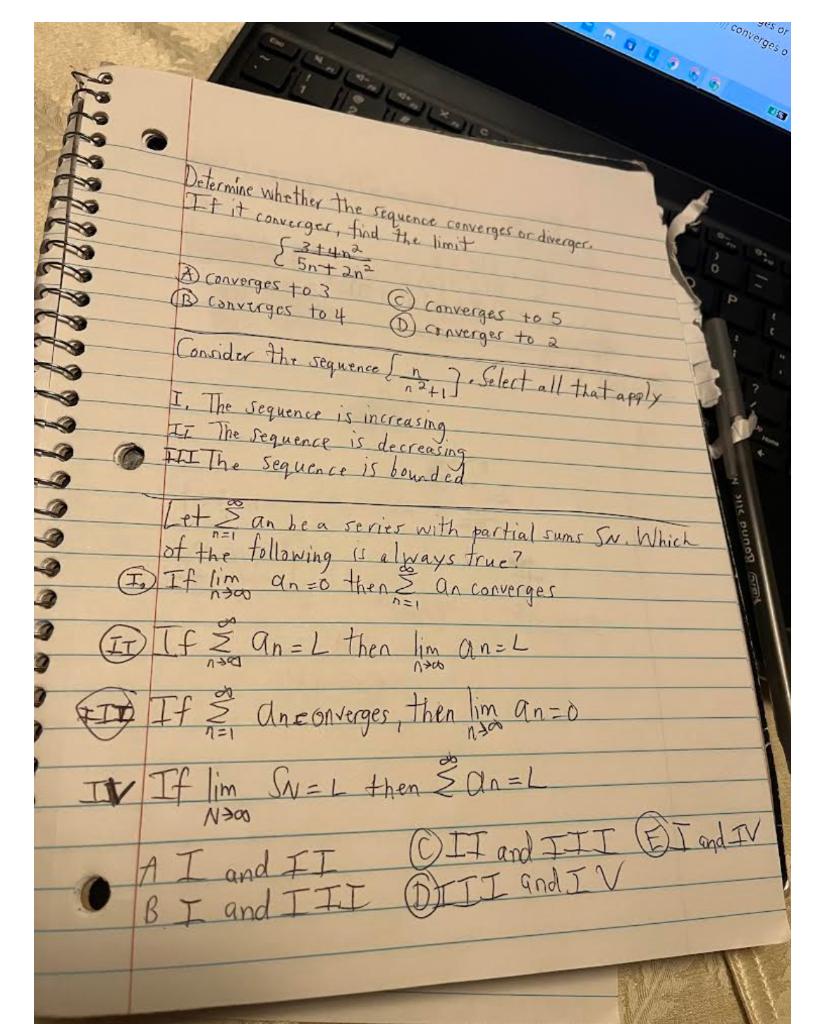 ges or
converges o
Determine whether the sequence converges or diverges.
If it converges, find the limit
{ 3+4n² / 5n+2n²
A converges to 3
B converges to 4
C converges to 5
D converges to 2
Consider the sequence { n / n²+1 }. Select all that apply
I. The sequence is increasing
II The sequence is decreasing
III The sequence is bounded
Let ∞ Σ n=1 an be a series with partial sums SN. Which
of the following is always true?
I. If lim n→∞ an=0 then ∞ Σ n=1 an converges
II If ∞ Σ n→∞ an = L then lim n→∞ an=L
III If ∞ Σ n=1 an converges, then lim n→∞ an=0
IV If lim N→∞ SN = L then ∞ Σ an = L
A I and II
B I and III
C II and III
D III and IV
E I and IV